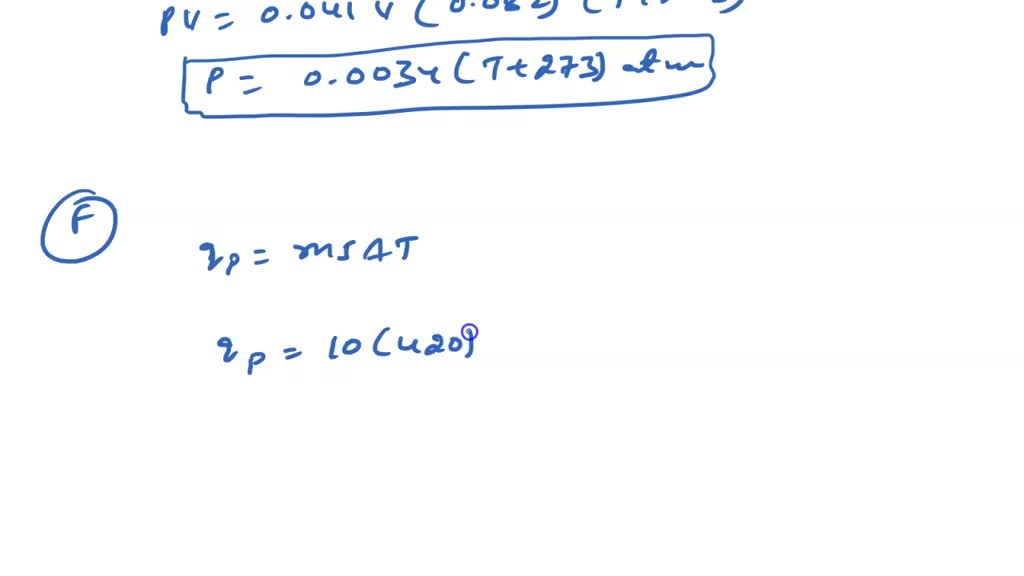 PV = 0.041 V (0.082) (T
P = 0.0034 (T+273) atm
F
qp = msΔT
qp = 10(420)